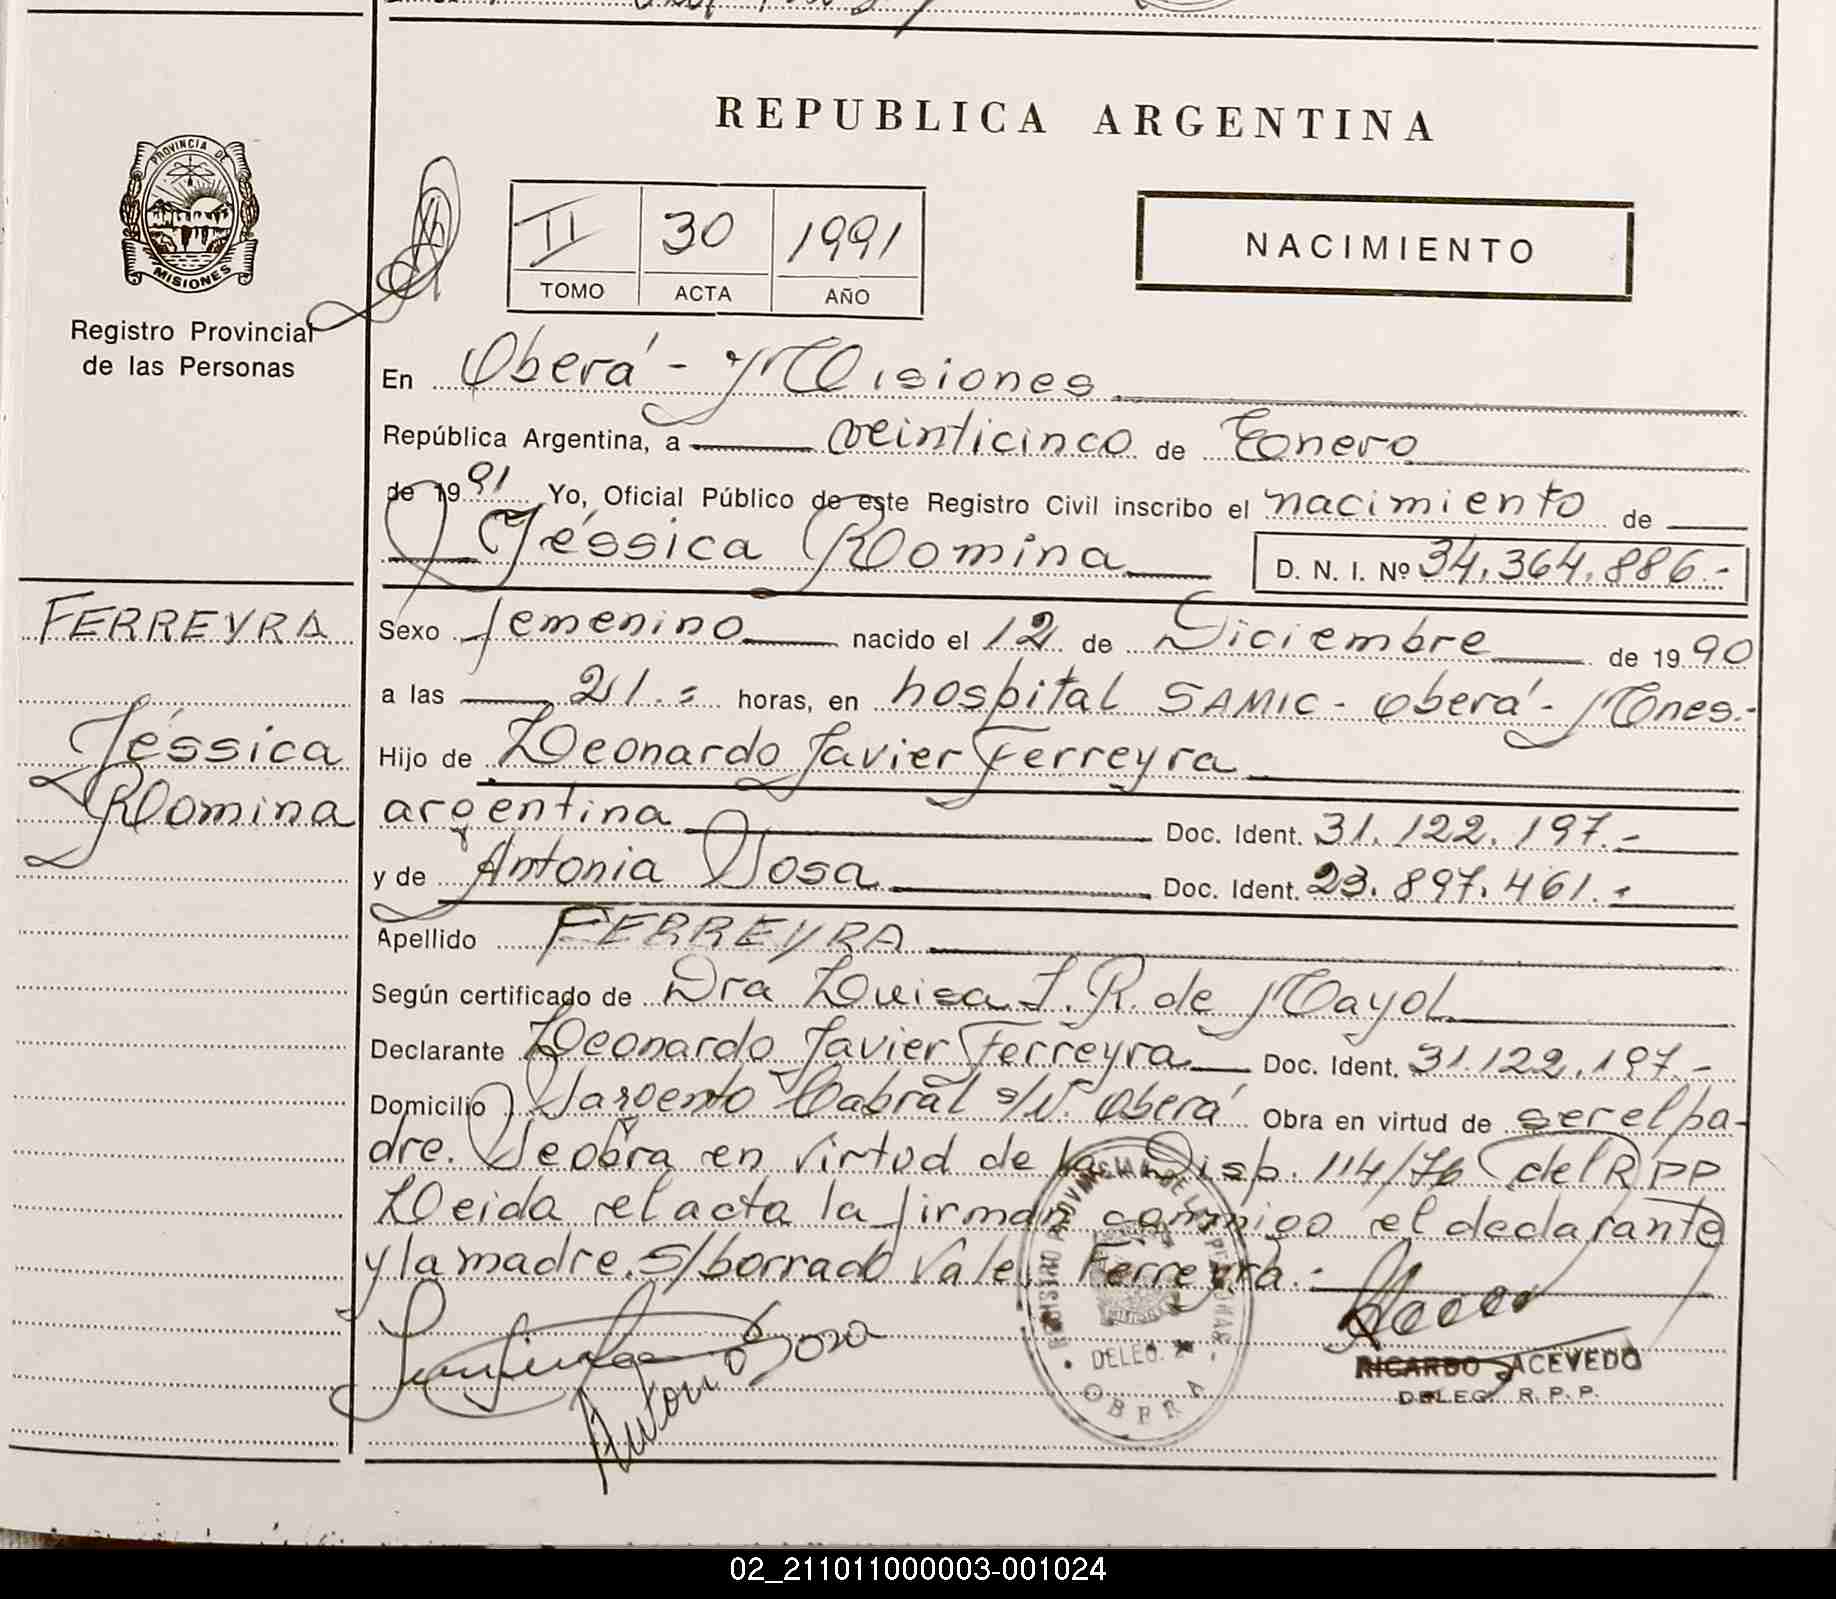 REPUBLICA ARGENTINA
PROVINCIA DE
MISIONES
Registro Provincial
de las Personas
II 30 1991
TOMO ACTA AÑO
NACIMIENTO
En Oberá - Misiones
República Argentina, a veinticinco de Enero
de 1991 Yo, Oficial Público de este Registro Civil inscribo el nacimiento de
Jéssica Romina D. N. I. Nº 34.364.886.-
FERREYRA
Jéssica
Romina
Sexo femenino nacido el 12 de Diciembre de 1990
a las 21.= horas, en hospital SAMIC - Oberá - Mnes.-
Hijo de Leonardo Javier Ferreyra
argentina Doc. Ident. 31.122.197.-
y de Antonia Sosa Doc. Ident. 23.897.461.-
Apellido FERREYRA
Según certificado de Dra Luisa I. R. de Mayol
Declarante Leonardo Javier Ferreyra Doc. Ident. 31.122.197.-
Domicilio Sargento Cabral s/N. Oberá Obra en virtud de ser el pa-
dre. Se obra en virtud de la Disp. 114/76 del RPP
Leida el acta la firman conmigo el declarante
y la madre. S/borrado Vale. Ferreyra.-
Antonia Sosa
DELEG.
OBERA
RICARDO ACEVEDO
DELEG. R. P. P.
02_211011000003-001024